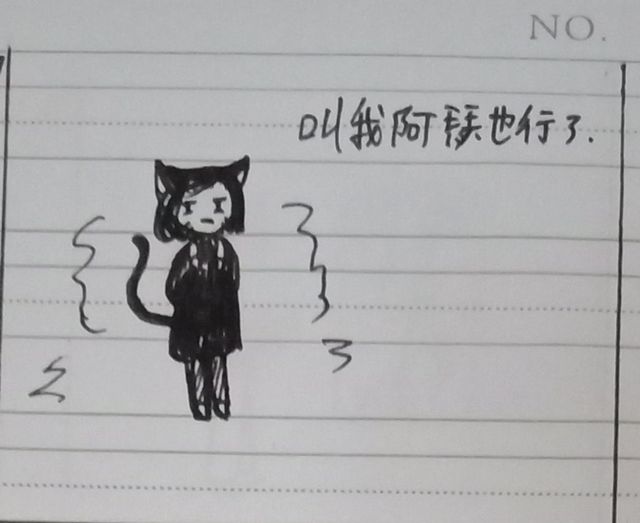 NO.
叫我阿也行了.